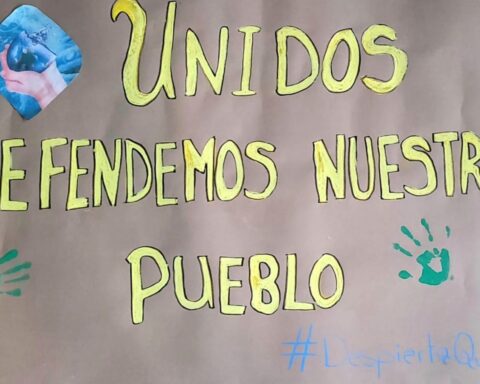 UNIDOS
EFENDEMOS NUESTR
PUEBLO
#DespiertaQu